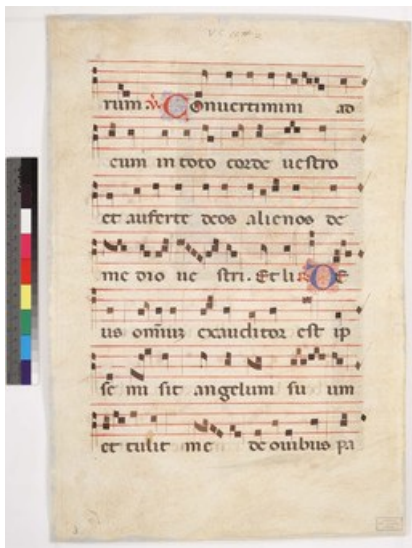 rum ℣ Conuertimini ad
eum in toto corde uestro
et auferte deos alienos de
me dio ue stri. Et li ℟ DE
us omniuz exauditor est ip
se mi sit angelum su um
et tulit me de ouibus pa